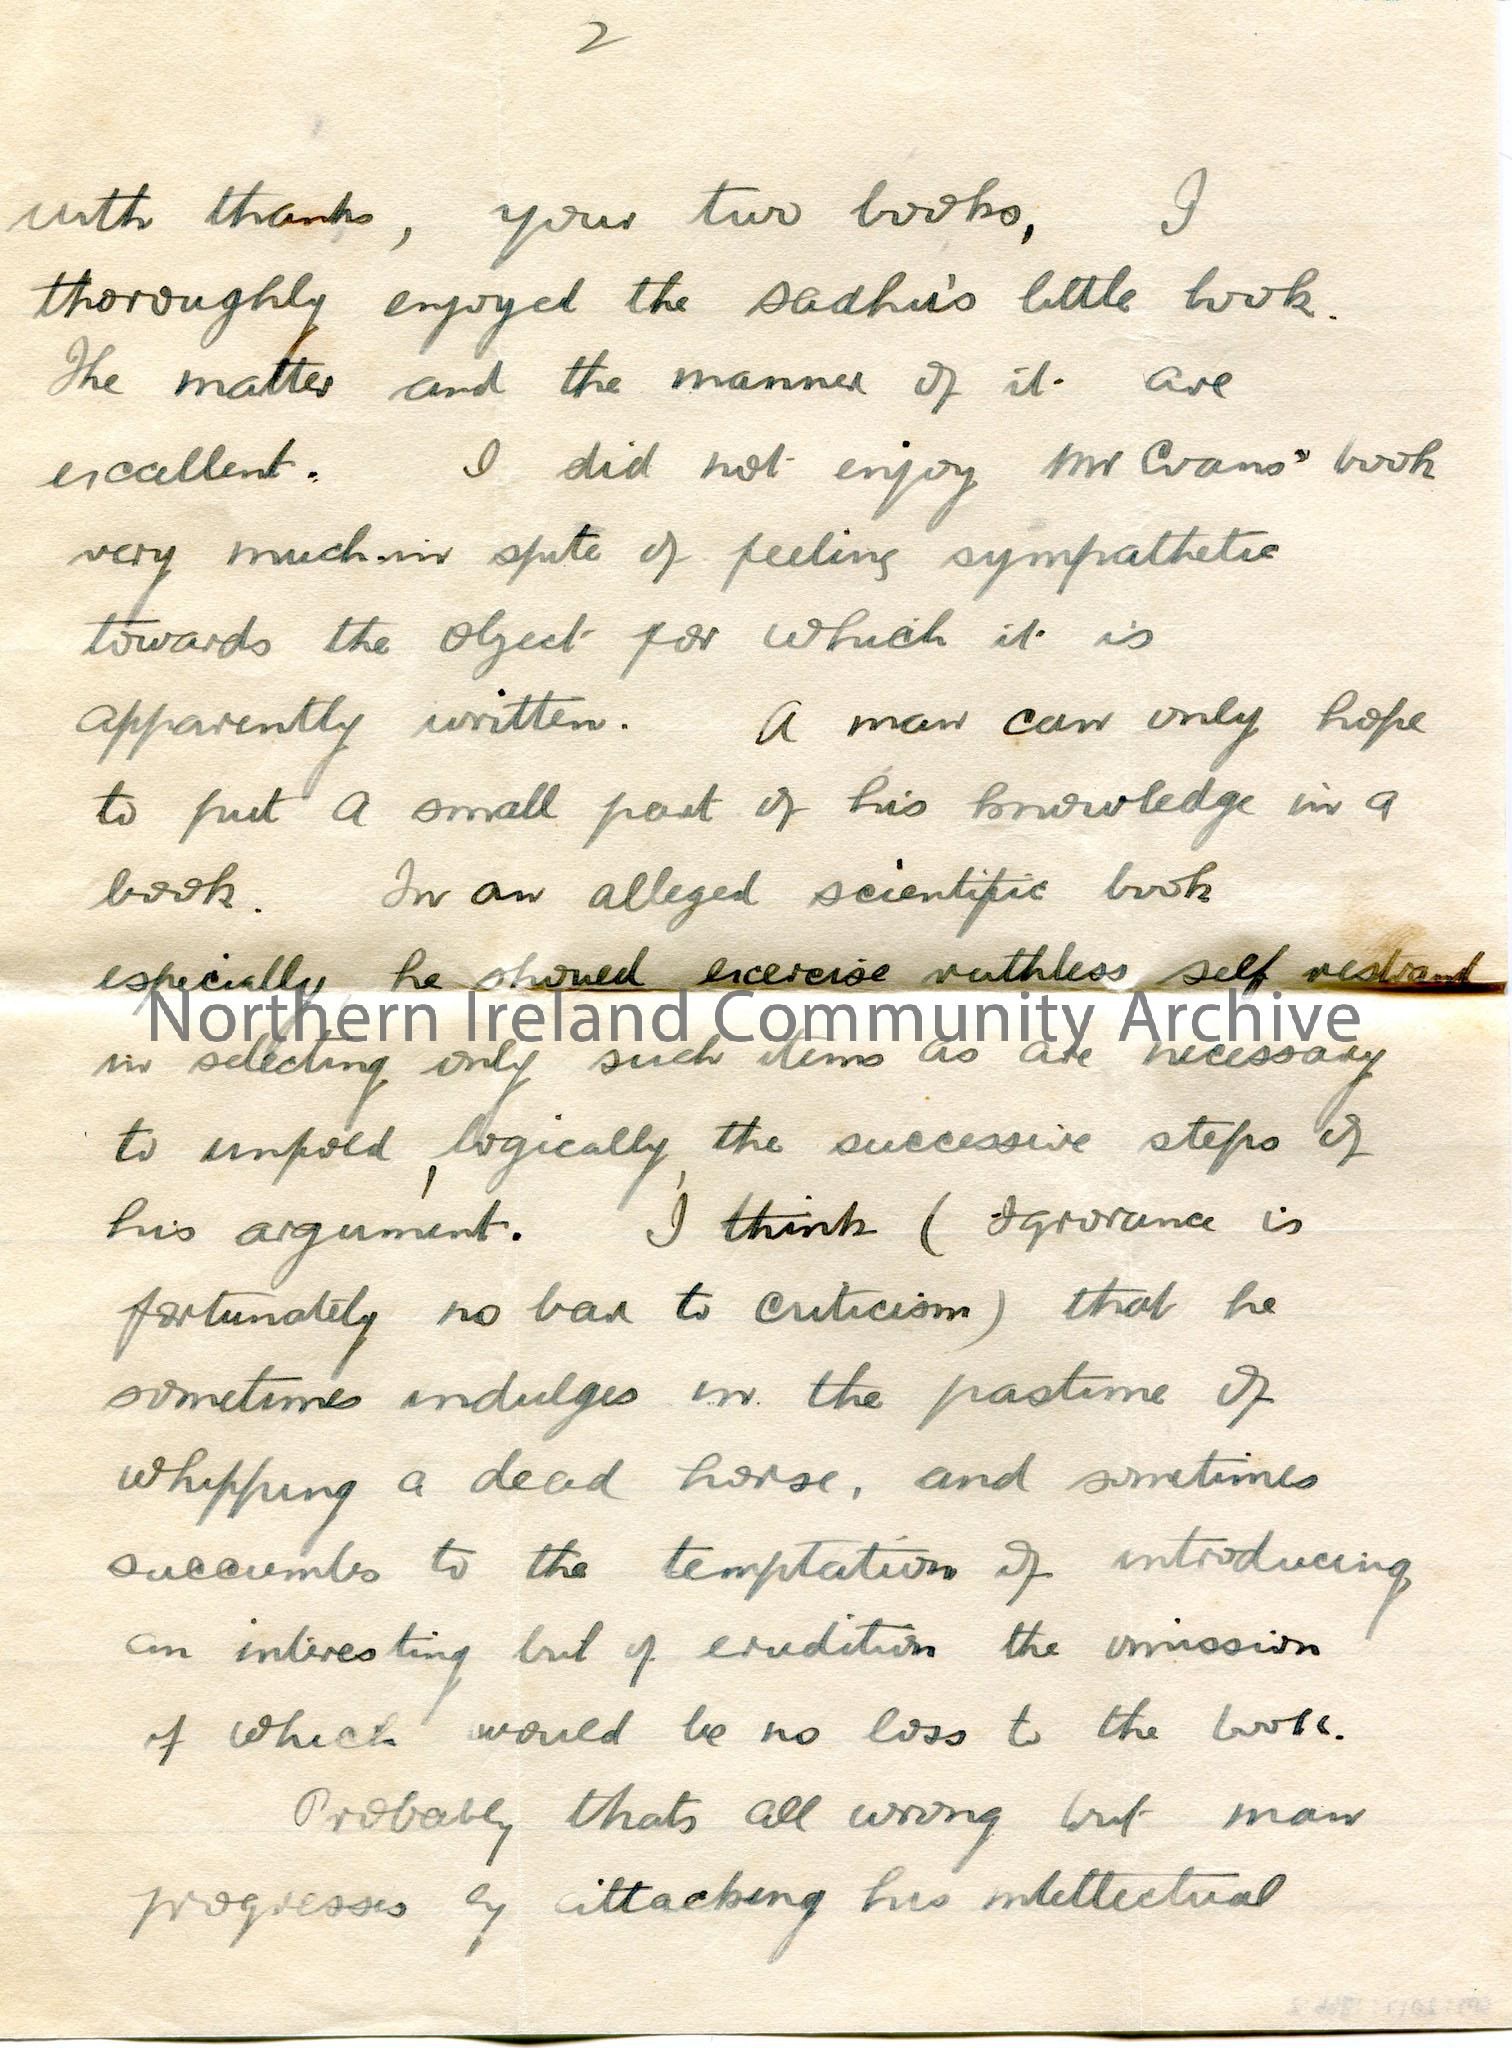 2
with thanks, your two books, I
thoroughly enjoyed the Sadhu's little book.
The matter and the manner of it are
excellent. I did not enjoy Mr Evans' book
very much in spite of feeling sympathetic
towards the object for which it is
apparently written. A man can only hope
to put a small part of his knowledge in a
book. In an alleged scientific book
especially he should exercise ruthless self
Northern Ireland Community Archive
in selecting only such items as are necessary
to unfold, logically, the successive steps of
his argument. I think (Ignorance is
fortunately no bar to criticism) that he
sometimes indulges in the pastime of
whipping a dead horse, and sometimes
succumbs to the temptation of introducing
an interesting bit of erudition the omission
of which would be no loss to the book.
Probably thats all wrong but man
progresses by attacking his intellectual